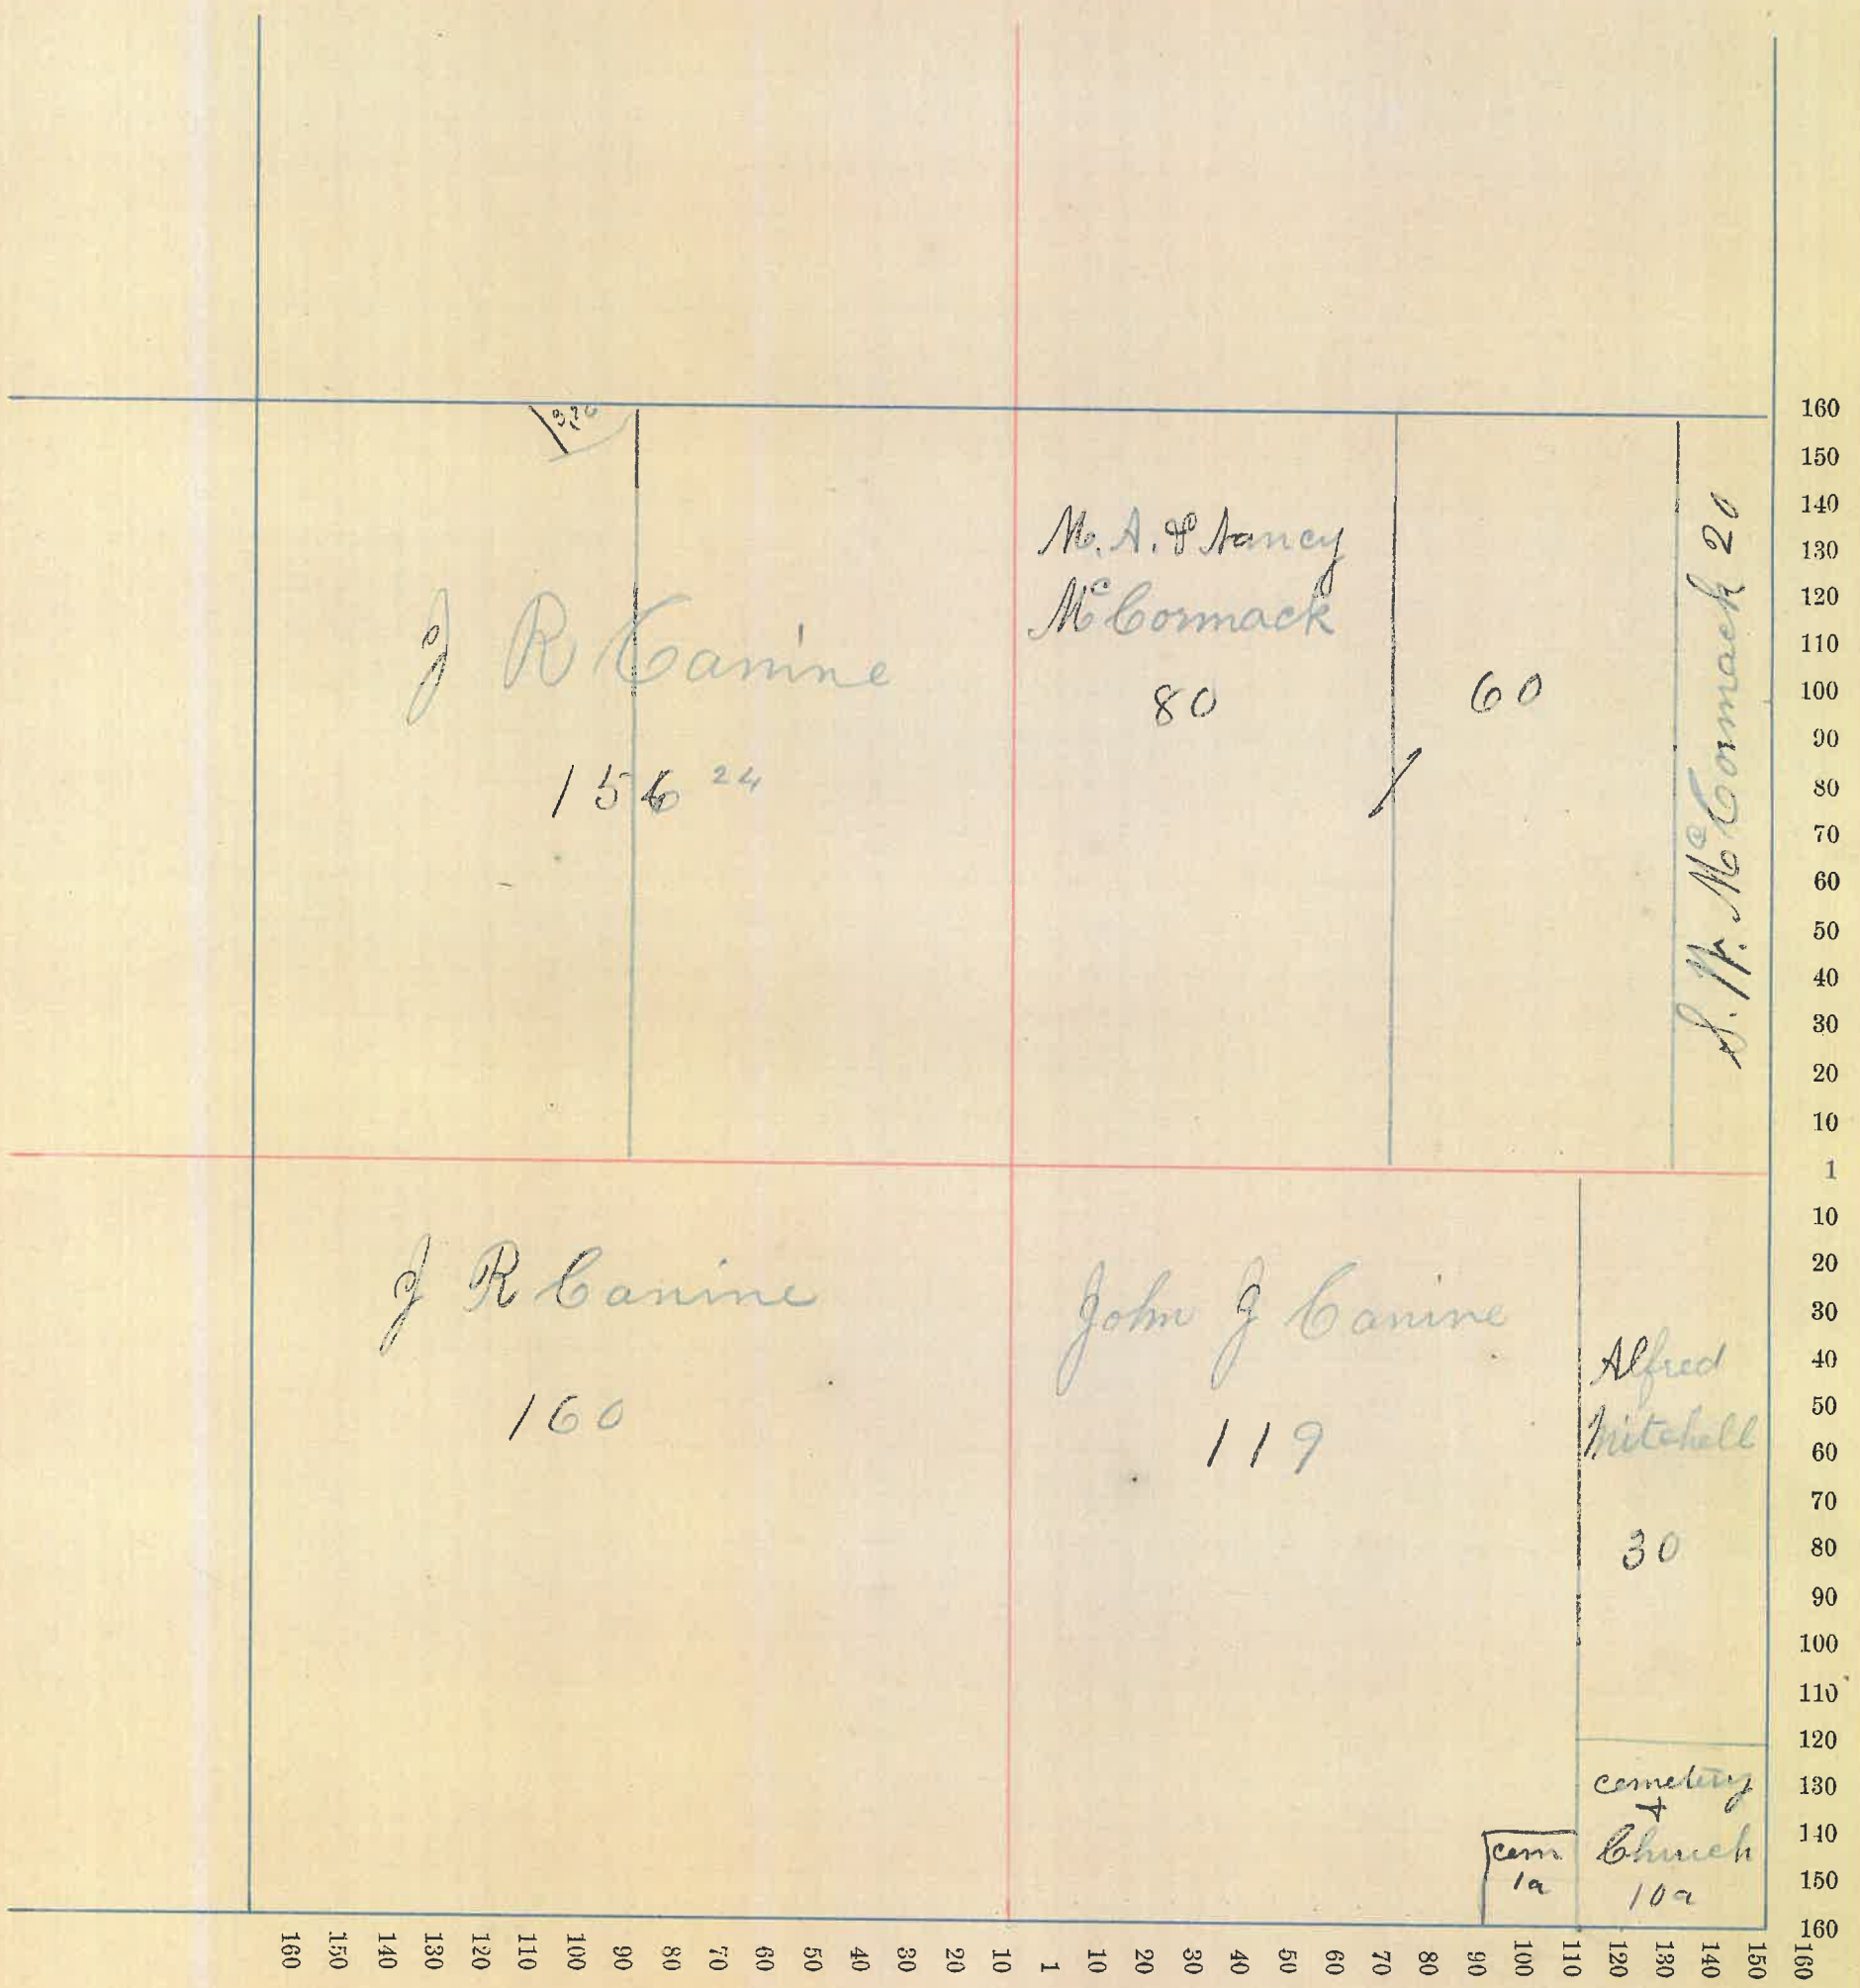 3.76
J R Canine
156 24
M. A. & Nancy
McCormack
80
60
McCormack 20
J R Canine
160
John J Canine
119
Alfred
Mitchell
30
cemetery
+
Church
10a
cem
1a
160
150
140
130
120
110
100
90
80
70
60
50
40
30
20
10
1
10
20
30
40
50
60
70
80
90
100
110
120
130
140
150
160
160 150 140 130 120 110 100 90 80 70 60 50 40 30 20 10 1 10 20 30 40 50 60 70 80 90 100 110 120 130 140 150 160